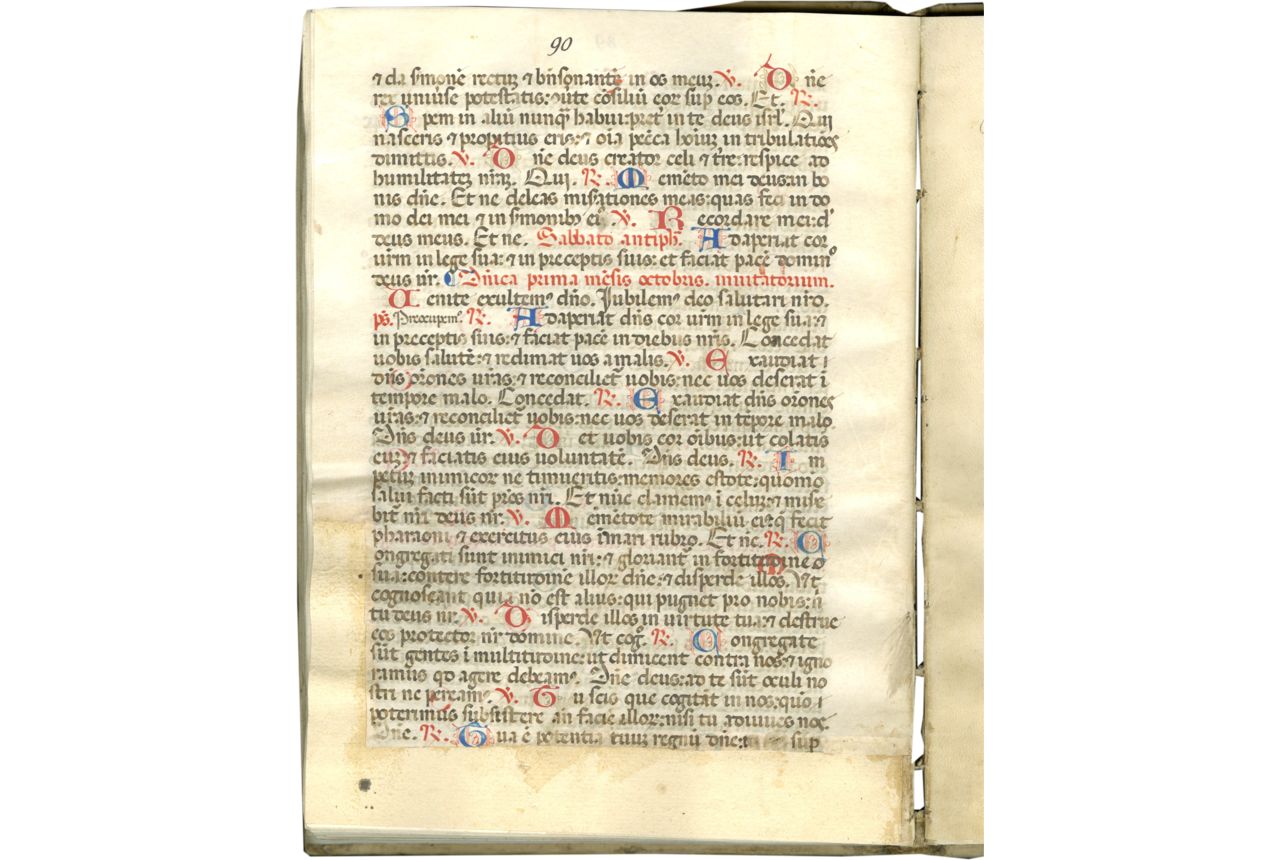 90
⁊ da s̄monē rectuꝫ ⁊ bn̄sonantē in os meuꝫ. ℣. D ne
rex uniuſe potestatis: cōsiliū cor sup eos. Et. ℟.
S pem in aliū nunqͣ habui: pret̄ in te deus isrl̄. Qui
irasceris ⁊ propitius eris: ⁊ oīa pecca hoīuꝫ in tribulatiōe
dimittis. ℣. D n̄e deus creator celi ⁊ tr̄e: respice ad
humilitateꝫ nr̄aꝫ. Qui. ℟. M emēto mei deus: in bo
nis dn̄e. Et ne deleas mis̄ationes meas: quas feci in do
mo dei mei ⁊ in s̄monibꝫ ei᷒ ℣. R ecordare mei: d'
deus meus. Et ne. Sabbato antiph̄. A daperiat cor
ur̄m in lege sua: ⁊ in preceptis suis: et faciat pacē domin᷒
deus nr̄. Dn̄ica prima mēsis octobris. inuitatorium.
U enite exultem᷒ dn̄o. Jubilem᷒ deo salutari nr̄o.
p̄s. Preocupem᷒. ℟. A daperiat dn̄s cor ur̄m in lege sua: ⁊
in preceptis suis: ⁊ faciat pacē in diebus nr̄is. Concedat
uobis salutē: ⁊ redimat uos a malis. ℣. E xaudiat
dn̄s or̄ones ur̄as: ⁊ reconciliet̄ uobis: nec uos deserat ī
tempore malo. Concedat. ℟. E xaudiat dn̄s or̄ones
ur̄as: ⁊ reconciliet̄ uobis: nec uos deserat in tēpore malo.
Dn̄s deus ur̄. ℣. D et uobis cor oībus: ut colatis
euꝫ ⁊ faciatis eius uoluntatē. Dn̄s deus. ℟. I m
petuꝫ inimicor ne timueritis: memores estote: quomo
salui facti sūt pr̄es nr̄i. Et nūc clamem᷒ ī celuꝫ: ⁊ mise
bit̄ nr̄i deus nr̄. ℣. M emētote mirabiliū ei᷒: q̄ fecit
pharaoni ⁊ exercitus eius ī mari rubro. Et nc̄. ℟. C
ongregati sunt inimici nr̄i: ⁊ gloriant̄ in fortitudine
sua: contere fortitudinē illor dn̄e: ⁊ disperde illos. Ut
cognoscant quia nō est alius: qui pugnet pro nobis: n̄
tu deus nr̄. ℣. D isperde illos in uirtute tua: ⁊ destrue
eos protector nr̄ domine. Ut coḡ. ℟. C ongregate
sūt gentes ī multitudine: ut dimicent contra nos: ⁊ igno
ramus qd agere debeam᷒. Dn̄e deus: ad te sūt oculi no
stri ne peream᷒. ℣. T u scis que cogitāt in nos: quō
poterimus subsistere an̄ faciē illor: nisi tu adiuues nos.
Dn̄e. ℟. T ua ē potentia tuuꝫ regnū dn̄e: tu sup